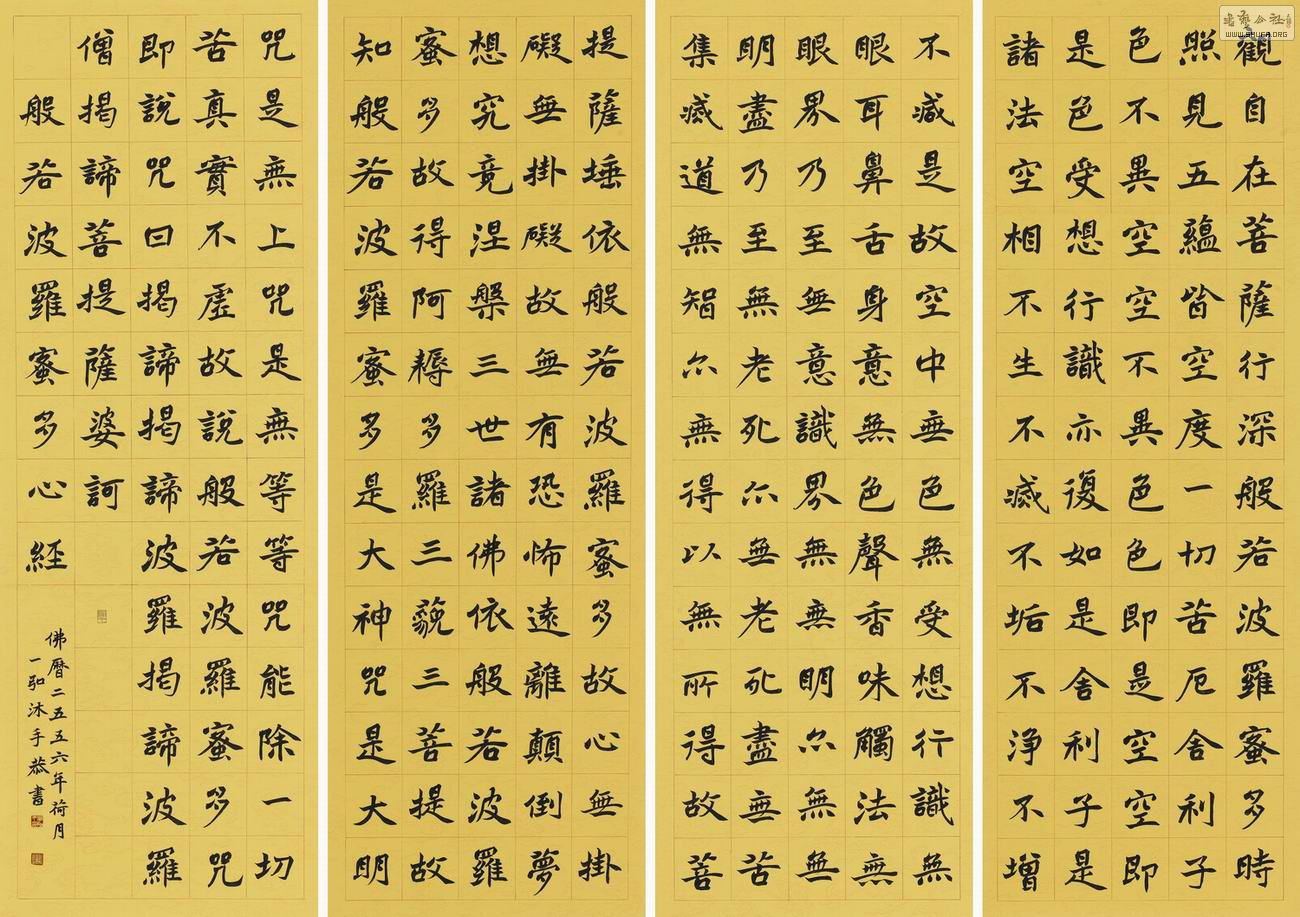 觀自在菩薩行深般若波羅蜜多時
照見五蘊皆空度一切苦厄舍利子
色不異空空不異色色即是空空即
是色受想行識亦復如是舍利子是
諸法空相不生不滅不垢不净不增
不減是故空中無色無受想行識無
眼耳鼻舌身意無色聲香味觸法無
眼界乃至無意識界無無明尒無無
明盡乃至無老死尒無老死盡無苦
集滅道無智尒無得以無所得故菩
提薩埵依般若波羅蜜多故心無掛
礙無掛礙故無有恐怖遠離顛倒夢
想究竟涅槃三世諸佛依般若波羅
蜜多故得阿耨多羅三藐三菩提故
知般若波羅蜜多是大神咒是大明
咒是無上咒是無等等咒能除一切
苦真實不虛故說般若波羅蜜多咒
即說咒曰揭諦揭諦波羅揭諦波羅
僧揭諦菩提薩婆訶
般若波羅蜜多心經
佛曆二五五六年荷月
一弘沐手恭書
書藝公社
WWW.SHUFA.ORG